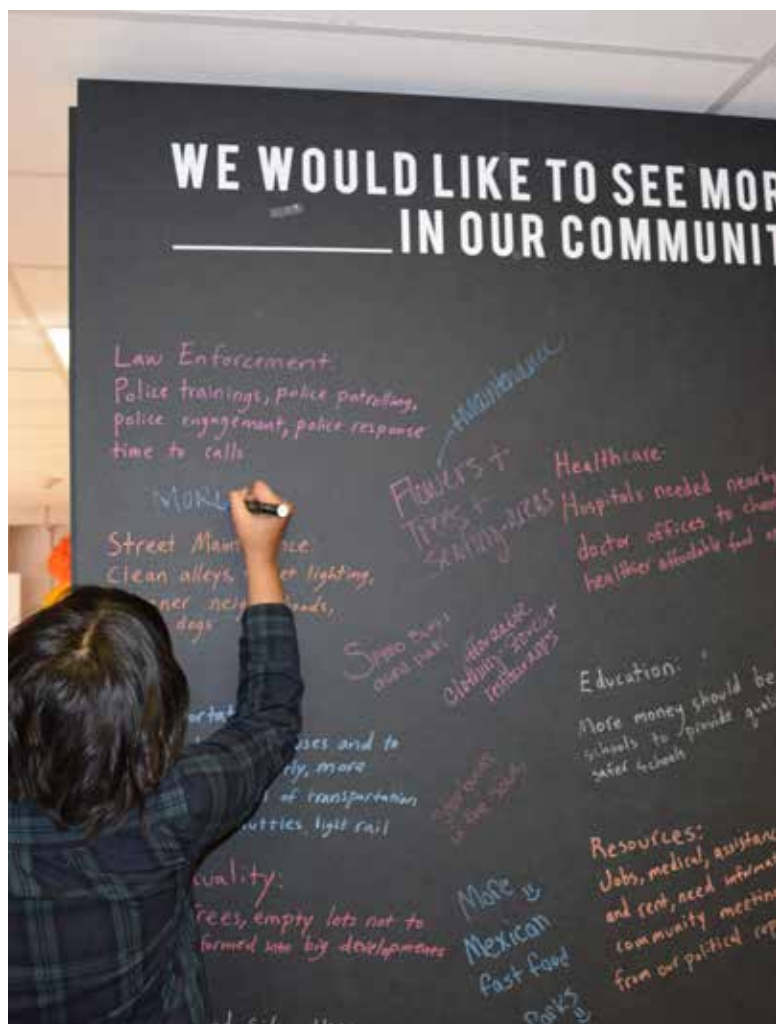 WE WOULD LIKE TO SEE MOR
IN OUR COMMUNIT
Law Enforcement:
Police trainings, police patrolling,
police engagement, police response
time to calls
MORE
Street Main nce
Clean alleys, lighting,
dogs
uses and to
ly, more
s of transportation
light rail
uality:
rees, empty lots not to
formed into big developments
+Maintenance
Flowers +
Trees +
Seating areas
Speed Bumps
affordable
clothing stores +
restaurants
in the
More
Mexican
fast food
Parks
Healthcare:
Hospitals needed nearby
doctor offices to
healthier affordable food
Education:
More money should be
schools to provide qual
safer schools
Resources:
Jobs, medical, assistan
and rent, need informa
community meetin
from our political rep